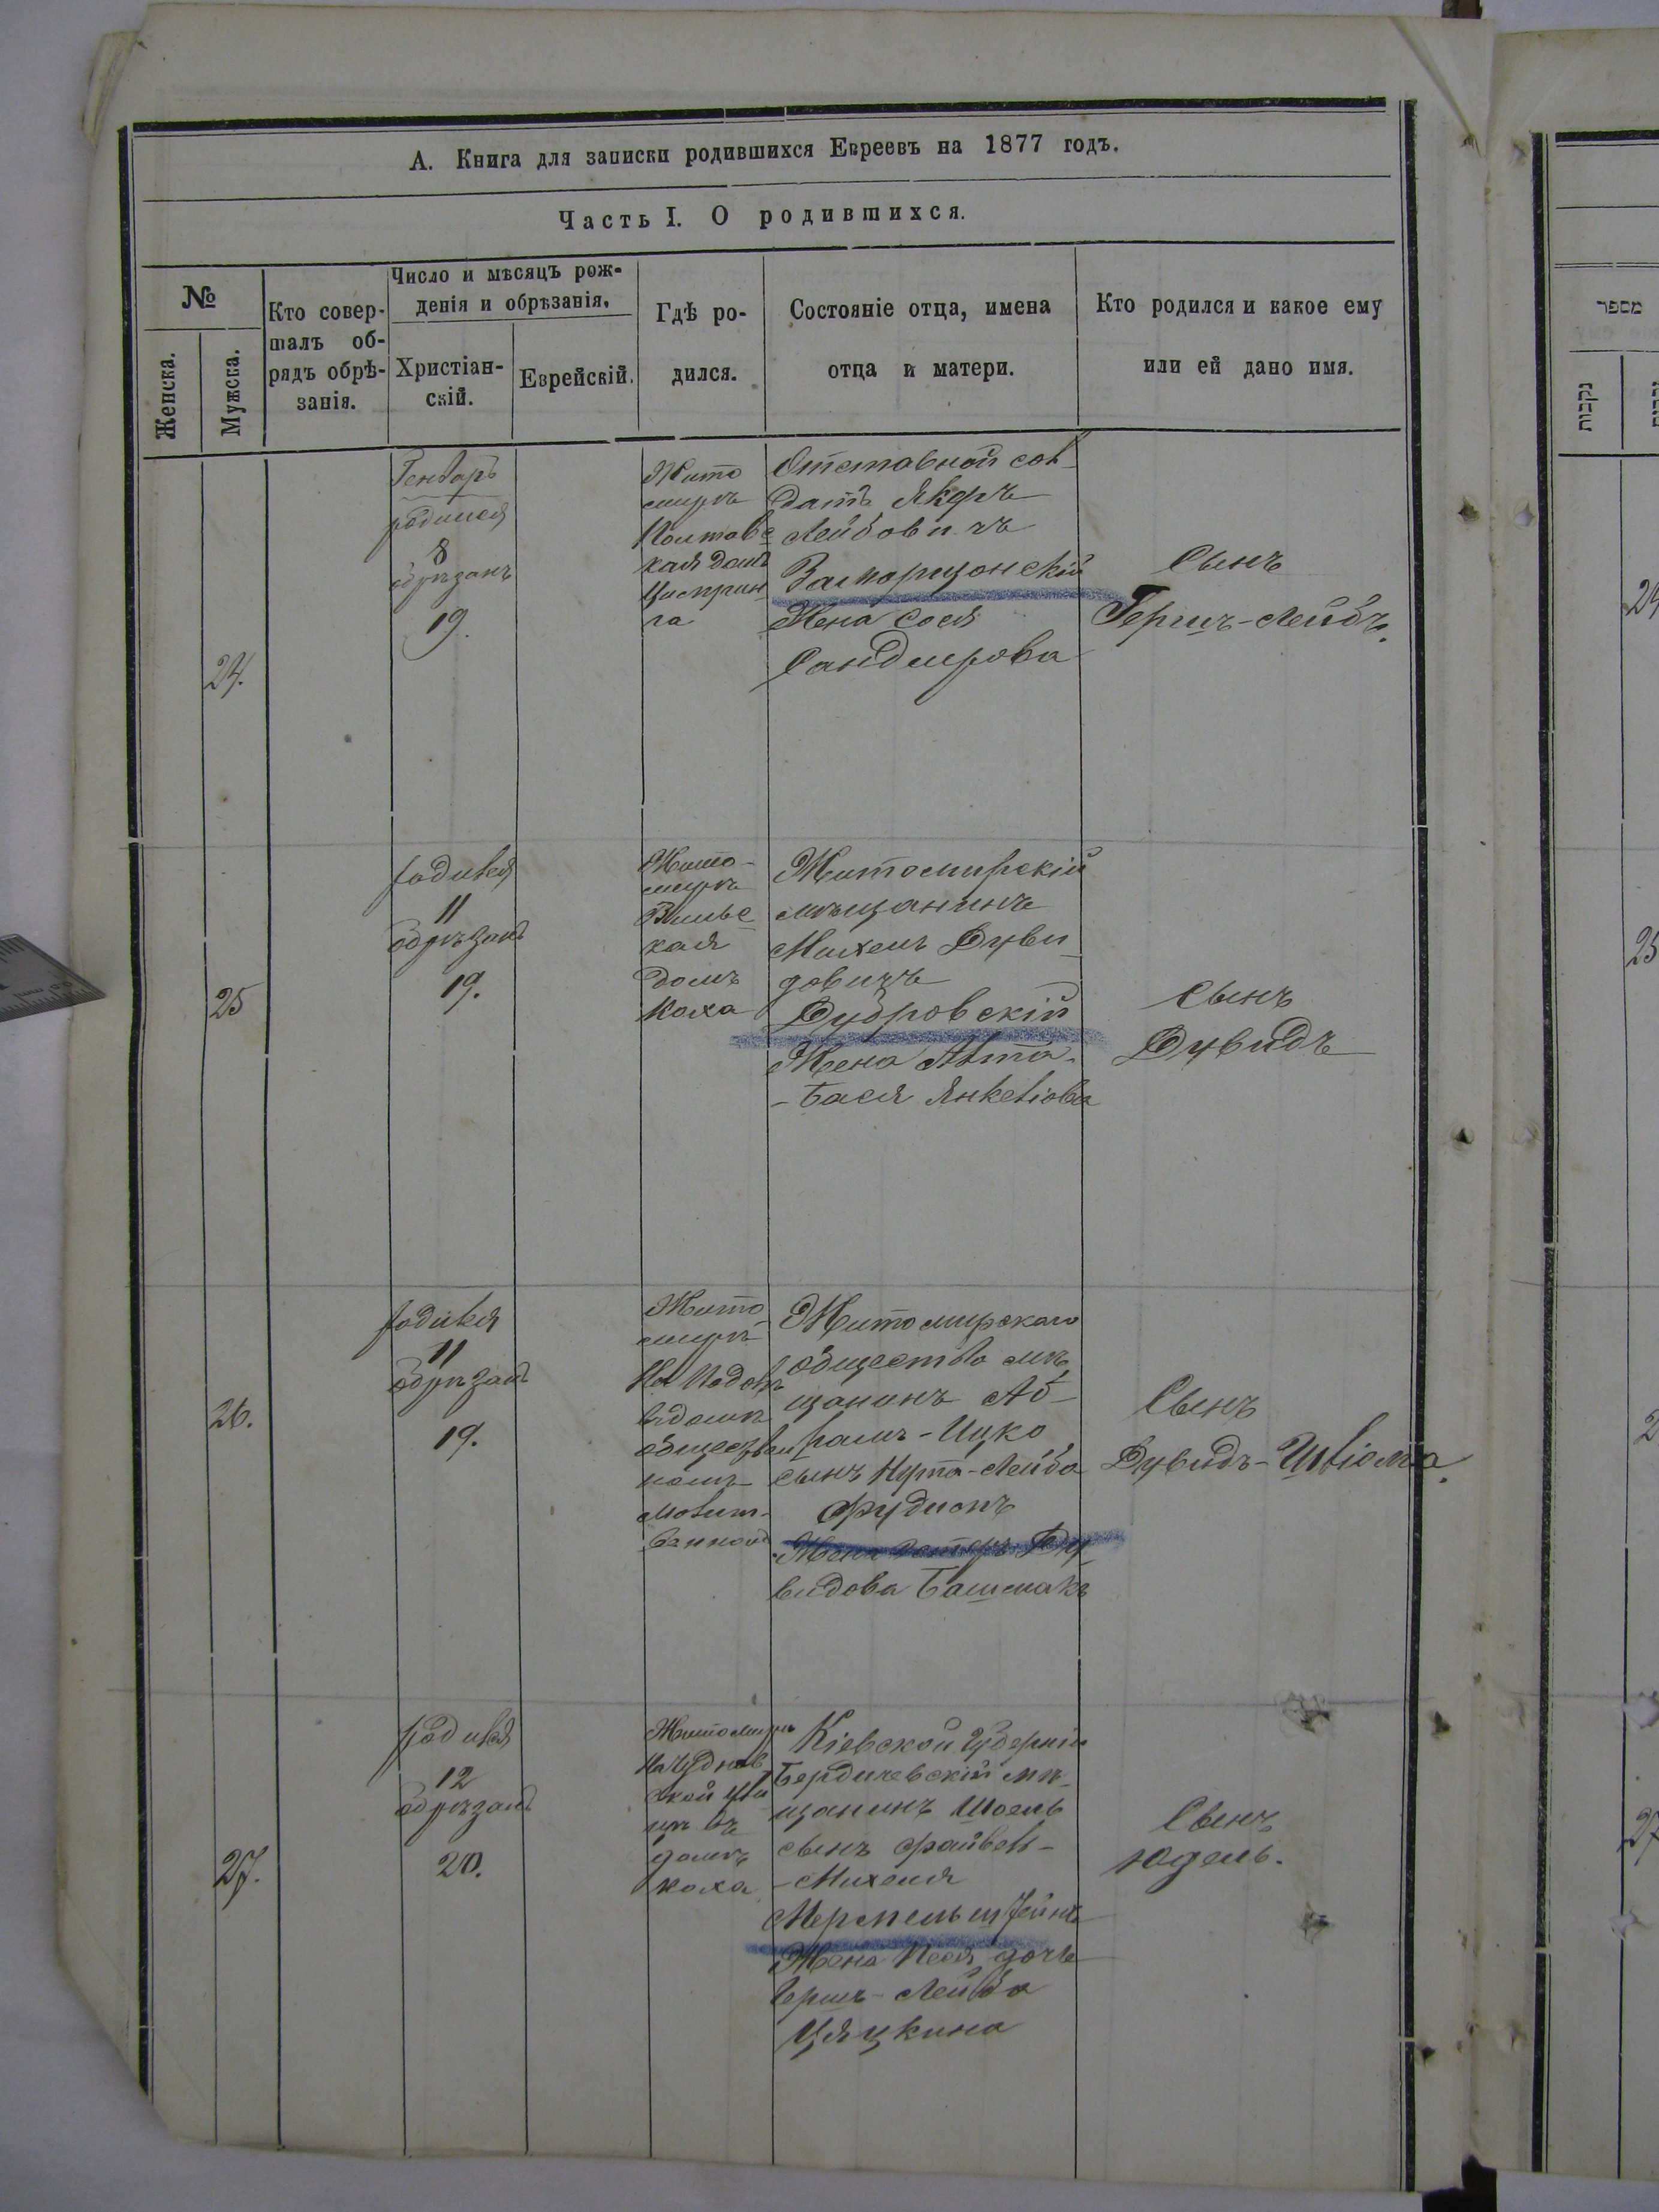 А. Книга для записки родившихся Евреевъ на 1877 годъ.
Часть I. О родившихся.
№
Женска.
Мужска.
Кто совер-
шалъ об-
рядъ обрѣ-
занія.
Число и мѣсяцъ рож-
денія и обрѣзанія.
Христіан-
скій.
Еврейскій.
Гдѣ ро-
дился.
Состояніе отца, имена
отца и матери.
Кто родился и какое ему
или ей дано имя.
24.
Генваръ
родился
8
обрѣзанъ
19.
Жито
миръ
Полтавс
кая домъ
Отставной сол
датъ
Лейбовичъ
Жена Сося
Сандирова
Сынъ
Герш-Лейбъ.
25
родился
11
обрѣзанъ
19.
Жито-
миръ
Вильс
кая
домъ
Коха
Житомирскій
мѣщанинъ
Михель Дуви
довичъ
Дубровскій
Жена
-Бася Янкеліова
Сынъ
Дувидъ
26.
родился
11
обрѣзанъ
19.
Жито-
миръ
На Подолѣ
въ домѣ
обществен
номъ
Житомирскаго
общества мѣ
щанинъ Аб-
рамъ-Ицко
сынъ Нута-Лейба
Фудманъ
Жена Эстеръ Ду
видова Башмакъ
Сынъ
Дувидъ-Шліома.
27.
родился
12
обрѣзанъ
20.
Житомиръ
На Чуднов
ской ули
цѣ въ
домѣ
коха
Кіевской Губерніи
Бердичевскій мѣ-
щанинъ Шоель
сынъ Файвель-
-Михеля
Мерпельштейнъ
Жена Песя дочь
Герш-Лейба
Цяцкина
Сынъ
Юдель.
מספר
נקבות
24
25
2
27